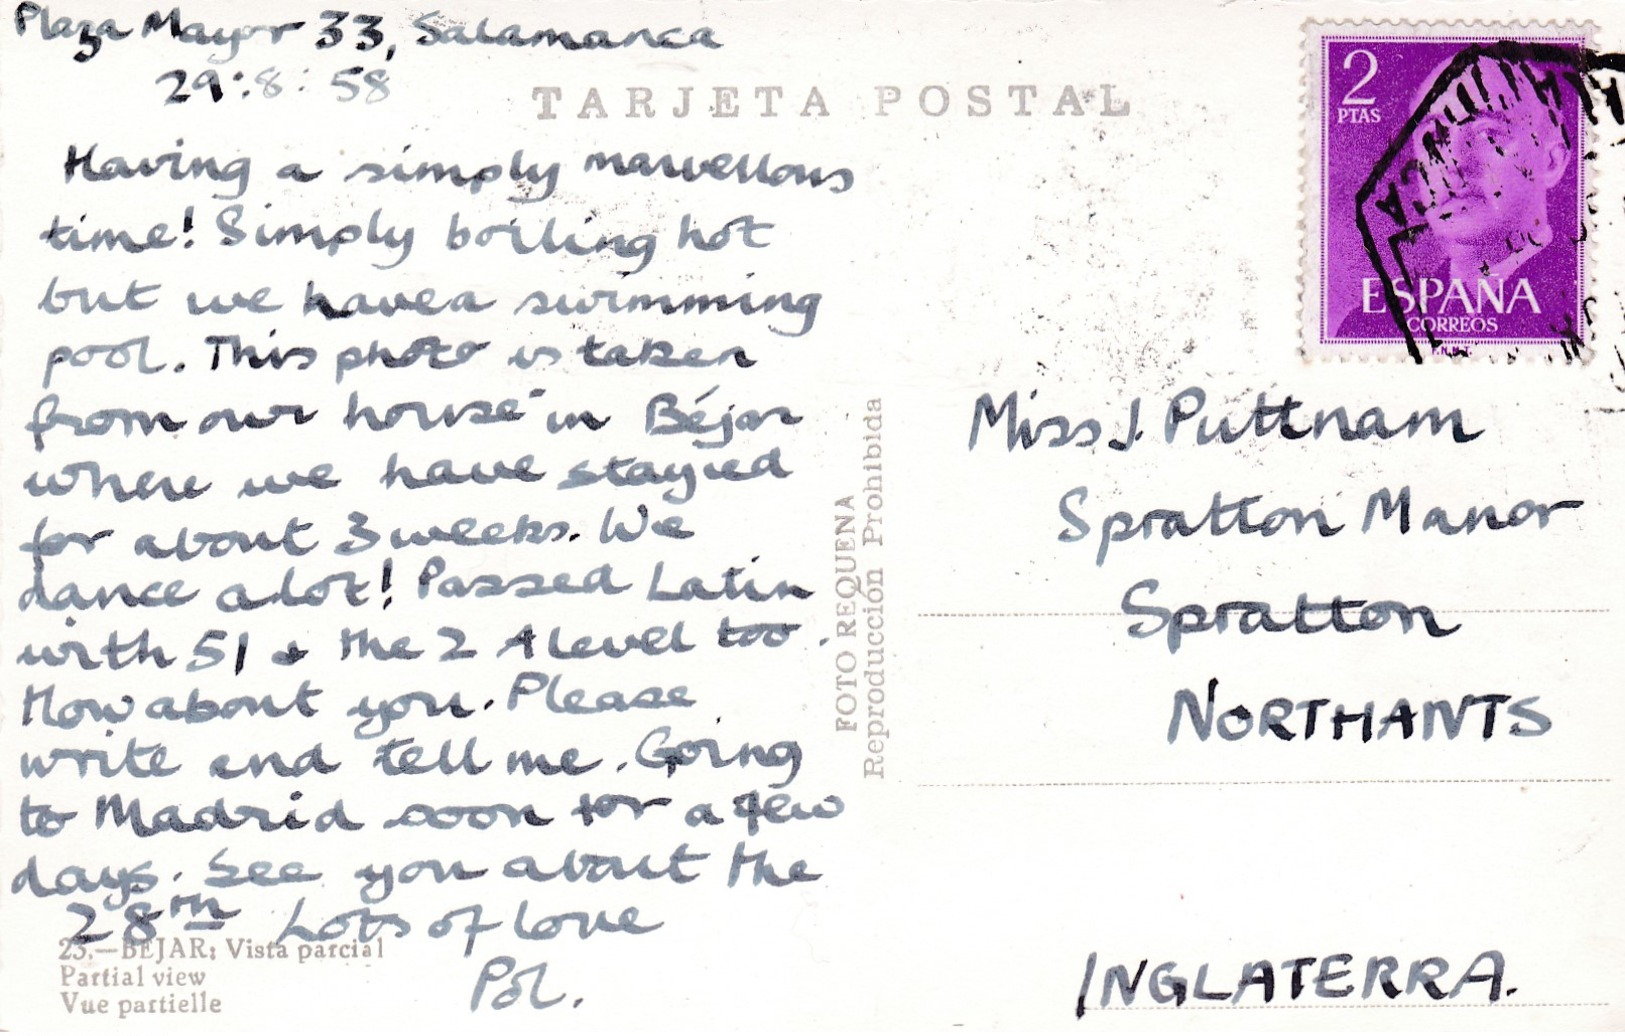 Plaza Mayor 33, Salamanca
29:8:58
TARJETA POSTAL
Having a simply marvellous
time! Simply boiling hot
but we have a swimming
pool. This photo is taken
from our house in Béjar
where we have stayed
for about 3 weeks. We
dance a lot! Passed Latin
with 51 & the 2 A level too.
How about you. Please
write and tell me. Going
to Madrid soon for a few
days. See you about the
28th Lots of love
Pol.
23.—BEJAR: Vista parcial
Partial view
Vue partielle
FOTO REQUENA
Reproducción Prohibida
2
PTAS
ESPAÑA
CORREOS
F.N.M.T.
Miss J. Puttnam
Spratton Manor
Spratton
NORTHANTS
INGLATERRA.